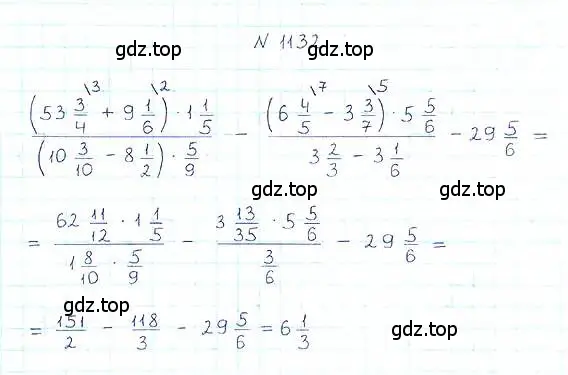 gdz.top
N 1132
(53 3/4 \3 + 9 1/6 \2) · 1 1/5 / (10 3/10 - 8 1/2) · 5/9 - (6 4/5 \7 - 3 3/7 \5) · 5 5/6 / 3 2/3 - 3 1/6 - 29 5/6 =
gdz.top gdz.top
= 62 11/12 · 1 1/5 / 1 8/10 · 5/9 - 3 13/35 · 5 5/6 / 3/6 - 29 5/6 =
gdz.top
= 151/2 - 118/3 - 29 5/6 = 6 1/3
gdz.top